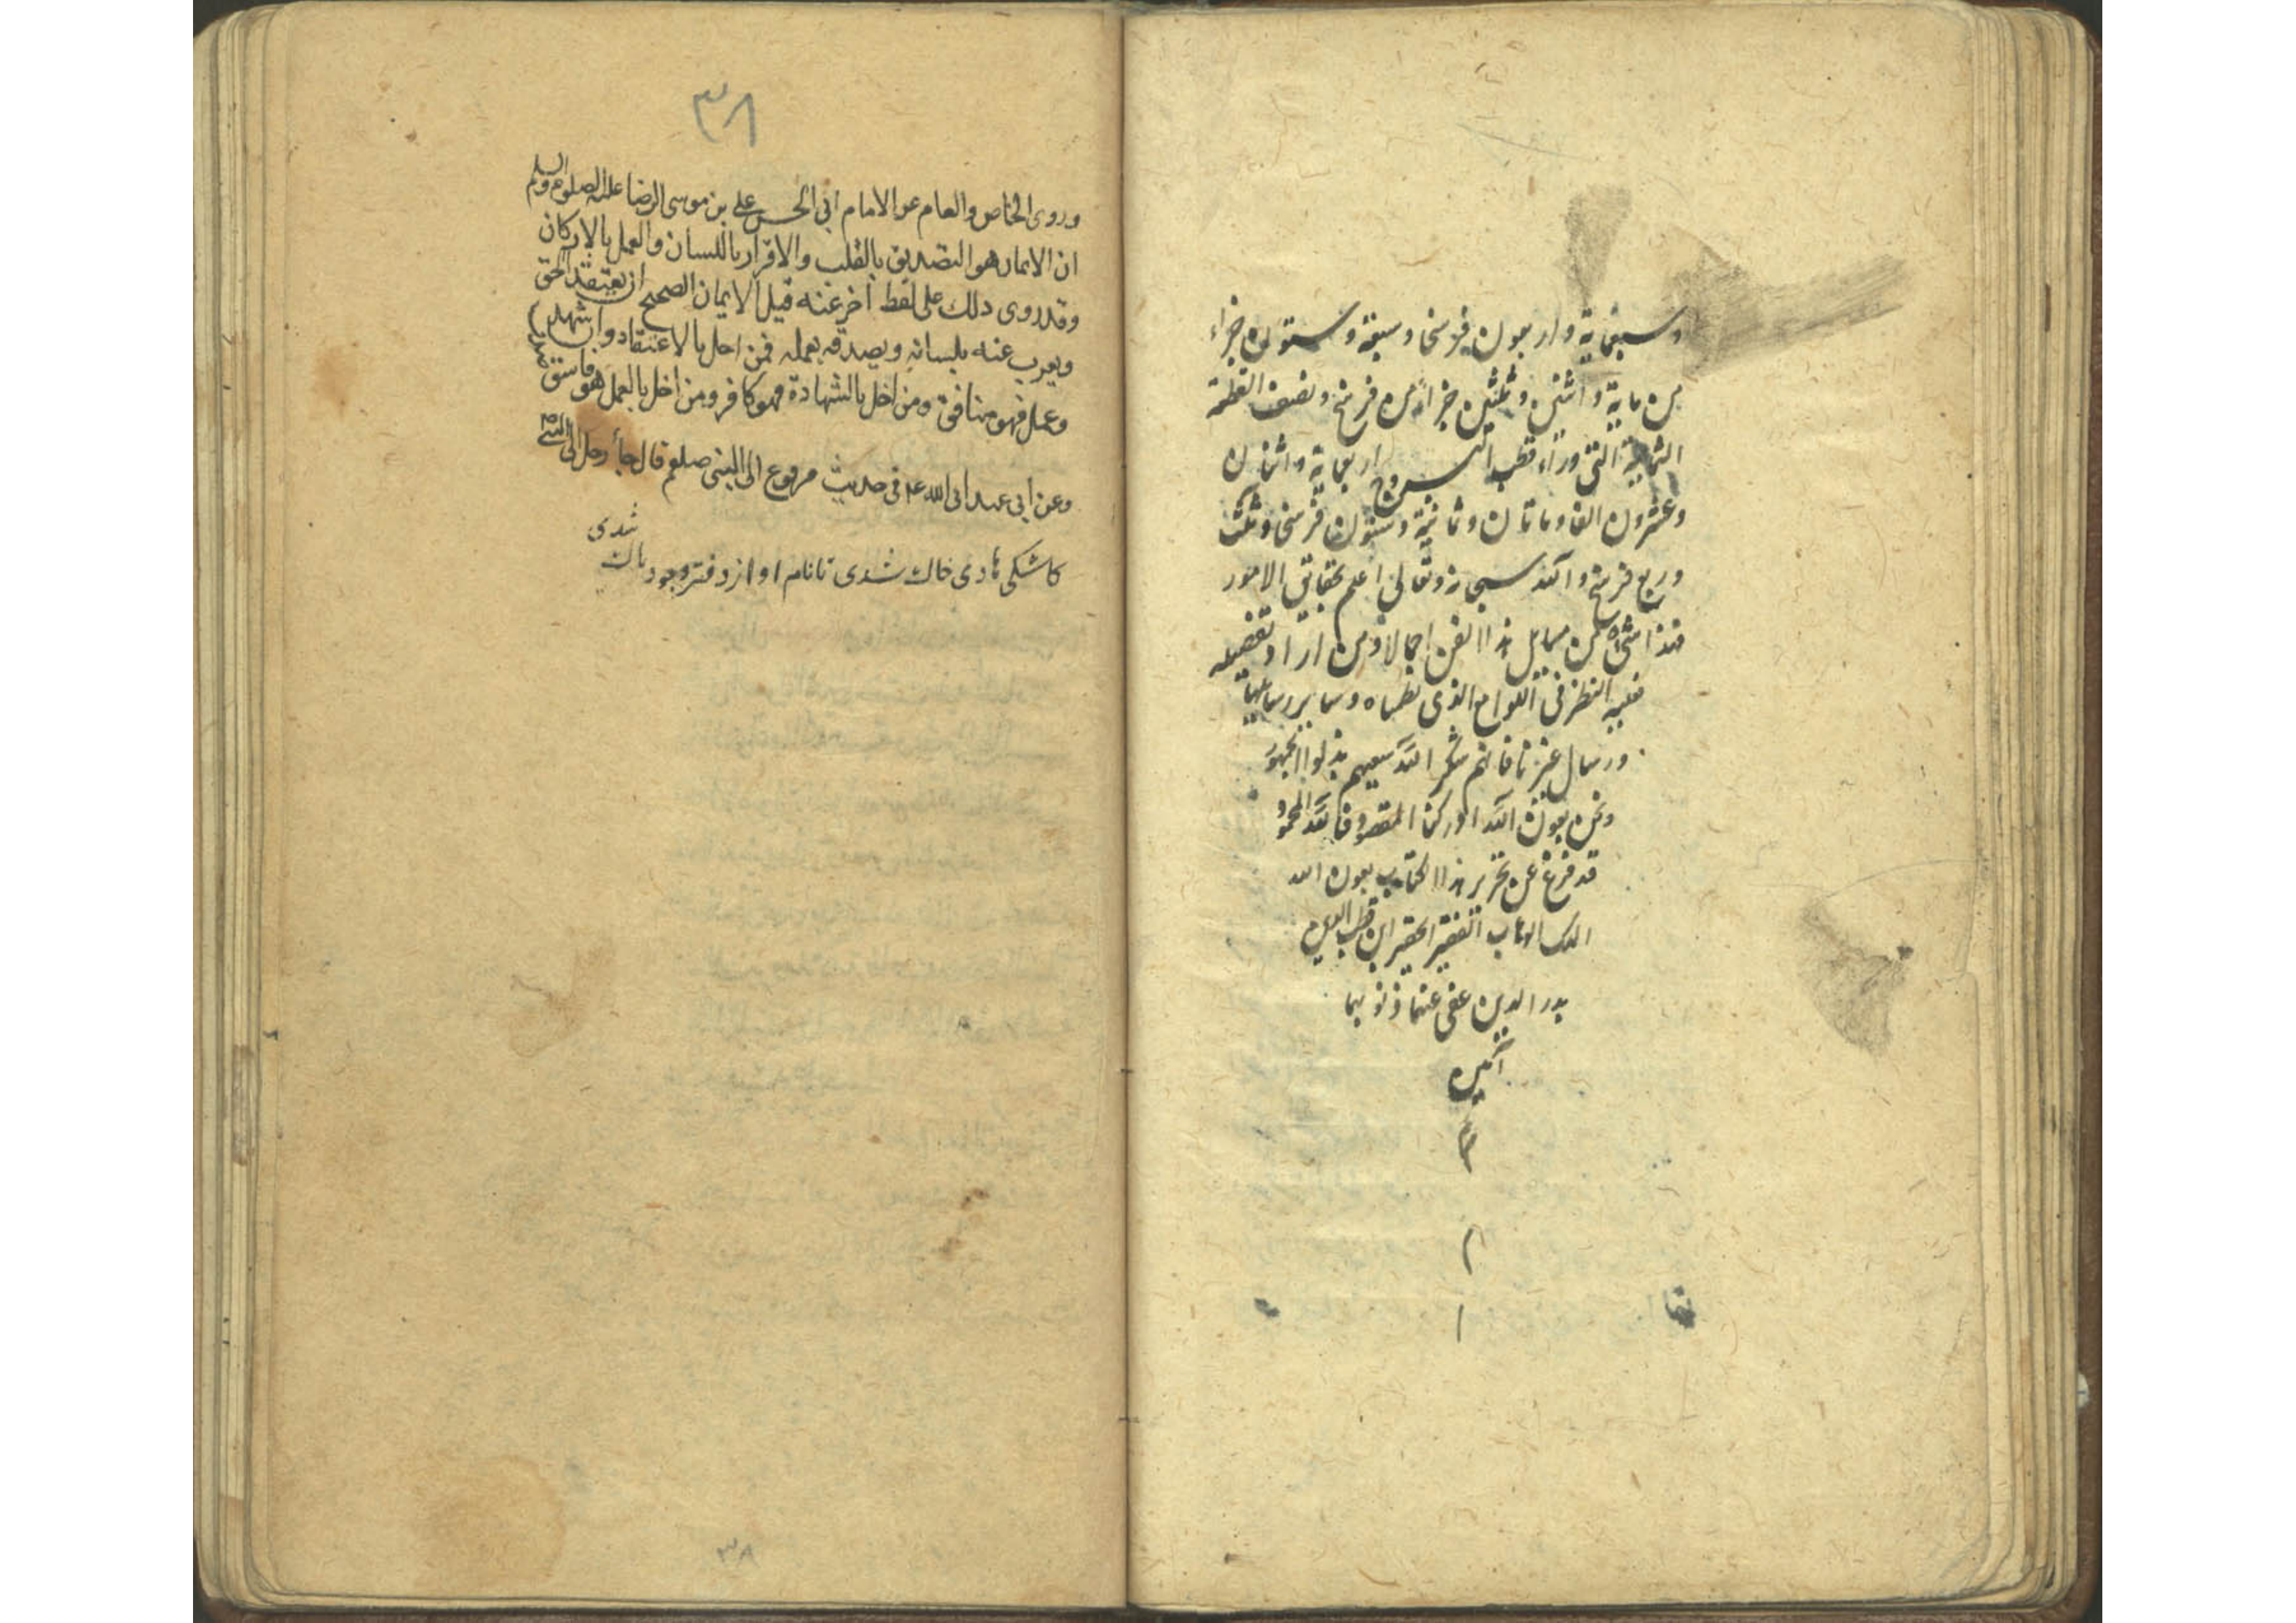 وسبعماية واربعون فرسخا وسبعة وستون جزاء
من ماية واثنين وثلثين جزاً من فرسخ ونصف القطعة
الشمالية التي وراء قطب البروج اربعماية واثنان
وعشرون الفا وماتان وثمانية وستون فرسخا وثلث
وربع فرسخ والله سبحانه وتعالى اعلم بحقائق الامور
فهذا شئ من مسايل هذا الفن اجمالا ومن اراد تفصيله
فعليه النظر في اللوامع الذي نظمناه وساير رسايلنا
ورسال غيرنا فانهم شكر الله سعيهم بذلوا المجهود
ونحن بعون الله ادركنا المقصود فالله المحمود
قد فرغ عن تحرير هذا الكتاب بعون الله
الملك الوهاب الفقير الحقير ابن قطب الدين
بدر الدين عفى عنهما ذنوبهما
آمين
م
م
١
٣٨
وروى الخاص والعام عن الامام ابي الحسن علي بن موسى الرضا عليه الصلوة والسلم
ان الايمان هو التصديق بالقلب والاقرار باللسان والعمل بالاركان
وقد روى ذلك على لفظ آخر عنه قيل الايمان الصحيح ان يعتقد الحق
ويعرب عنه بلسانه ويصدقه بعمله فمن اخل بالاعتقاد وان شهد
وعمل فهو منافق ومن اخل بالشهادة فهو كافر ومن اخل بالعمل فهو فاسق
وعن ابي عبد الله ع في حديث مرفوع الى النبي صلعم قال جاء رجل الى النبي
كاشكى هادى خاك شدى تا نام او از دفتر وجود پاك شدى
٣٨